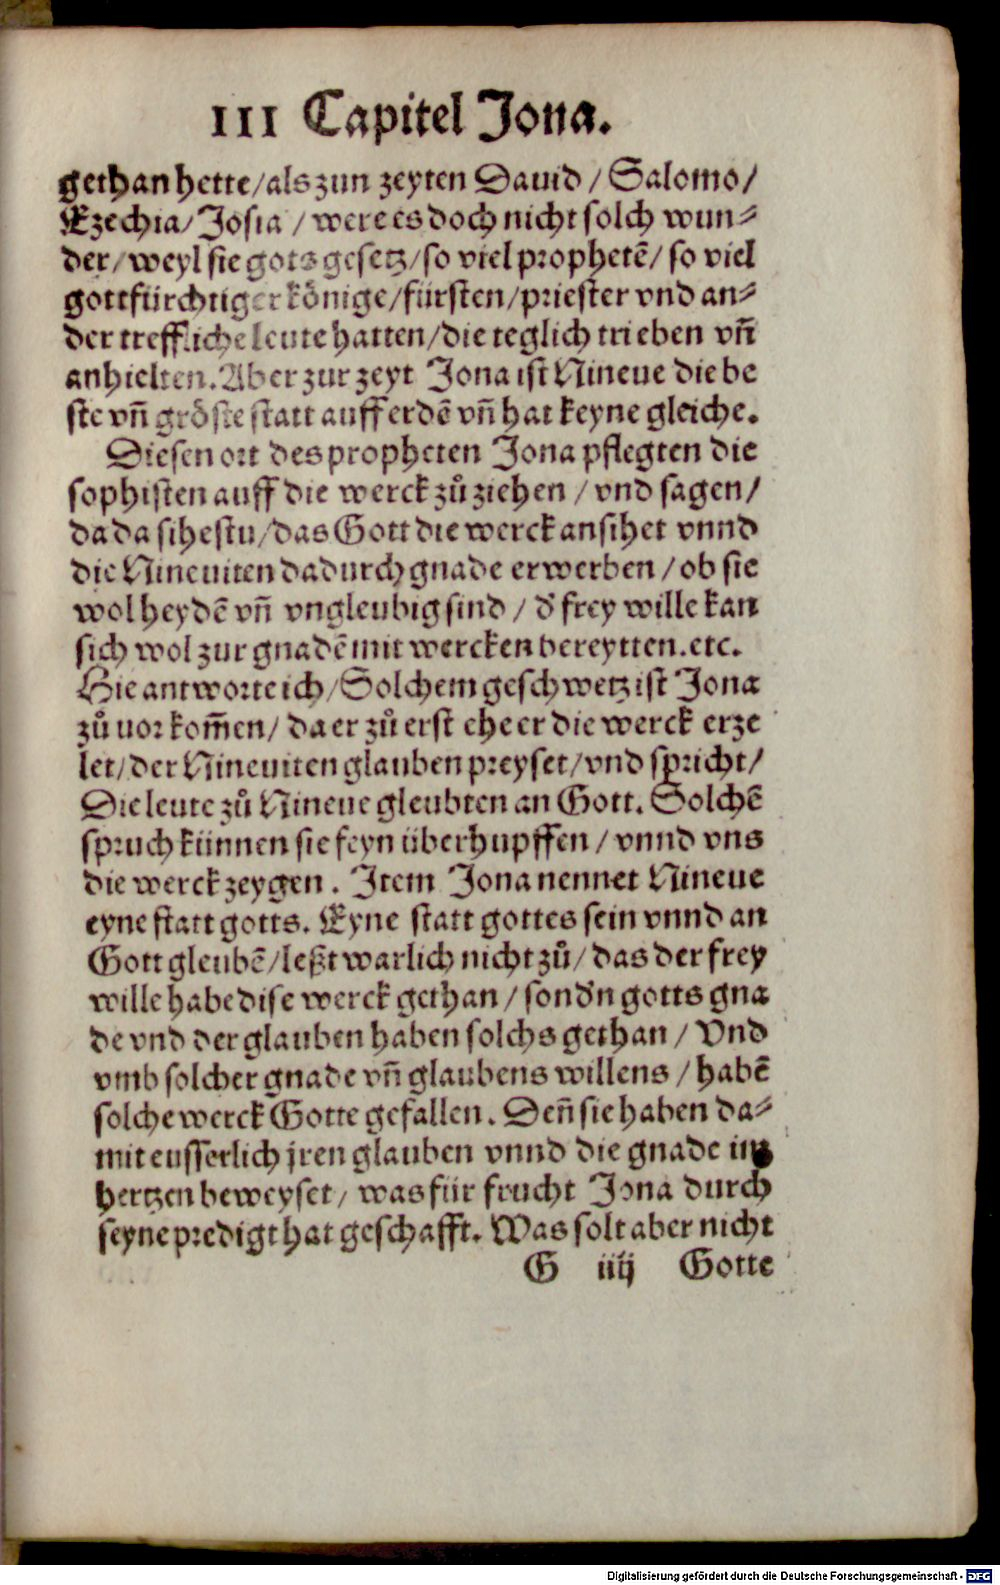 III Capitel Jona.
gethan hette/als zun zeyten Dauid / Salomo/
Ezechia/ Josia / were es doch nicht solch wun⸗
der/ weyl sie gots gesetz/ so viel prophetē/ so viel
gottfürchtiger könige/fürsten/priester vnd an⸗
der treffliche leute hatten/die teglich trieben vñ
anhielten. Aber zur zeyt Jona ist Nineue die be
ste vñ gröste statt auff erdē vñ hat keyne gleiche.
Diesen ort des propheten Jona pflegten die
sophisten auff die werck zů ziehen / vnd sagen/
da da sihestu/das Gott die werck ansihet vnnd
die Nineuiten dadurch gnade erwerben / ob sie
wol heydē vñ vngleubig sind / d' frey wille kan
sich wol zur gnadē mit wercken bereytten.etc.
Hie antworte ich/ Solchem geschwetz ist Jona
zů uor kom̄en/ da er zů erst ehe er die werck erze
let/ der Nineuiten glauben preyset/ vnd spricht/
Die leute zů Nineue gleubten an Gott. Solchē
spruch künnen sie feyn überhupffen / vnnd vns
die werck zeygen . Item Jona nennet Nineue
eyne statt gotts. Eyne statt gottes sein vnnd an
Gott gleubē/leßt warlich nicht zů/ das der frey
wille habe dise werck gethan / sond'n gotts gna
de vnd der glauben haben solchs gethan / Vnd
vmb solcher gnade vñ glaubens willens / habē
solche werck Gotte gefallen. Deñ sie haben da⸗
mit eusserlich jren glauben vnnd die gnade im
hertzen beweyset/ was für frucht Jona durch
seyne predigt hat geschafft. Was solt aber nicht
G iiij Gotte
Digitalisierung gefördert durch die Deutsche Forschungsgemeinschaft - DFG